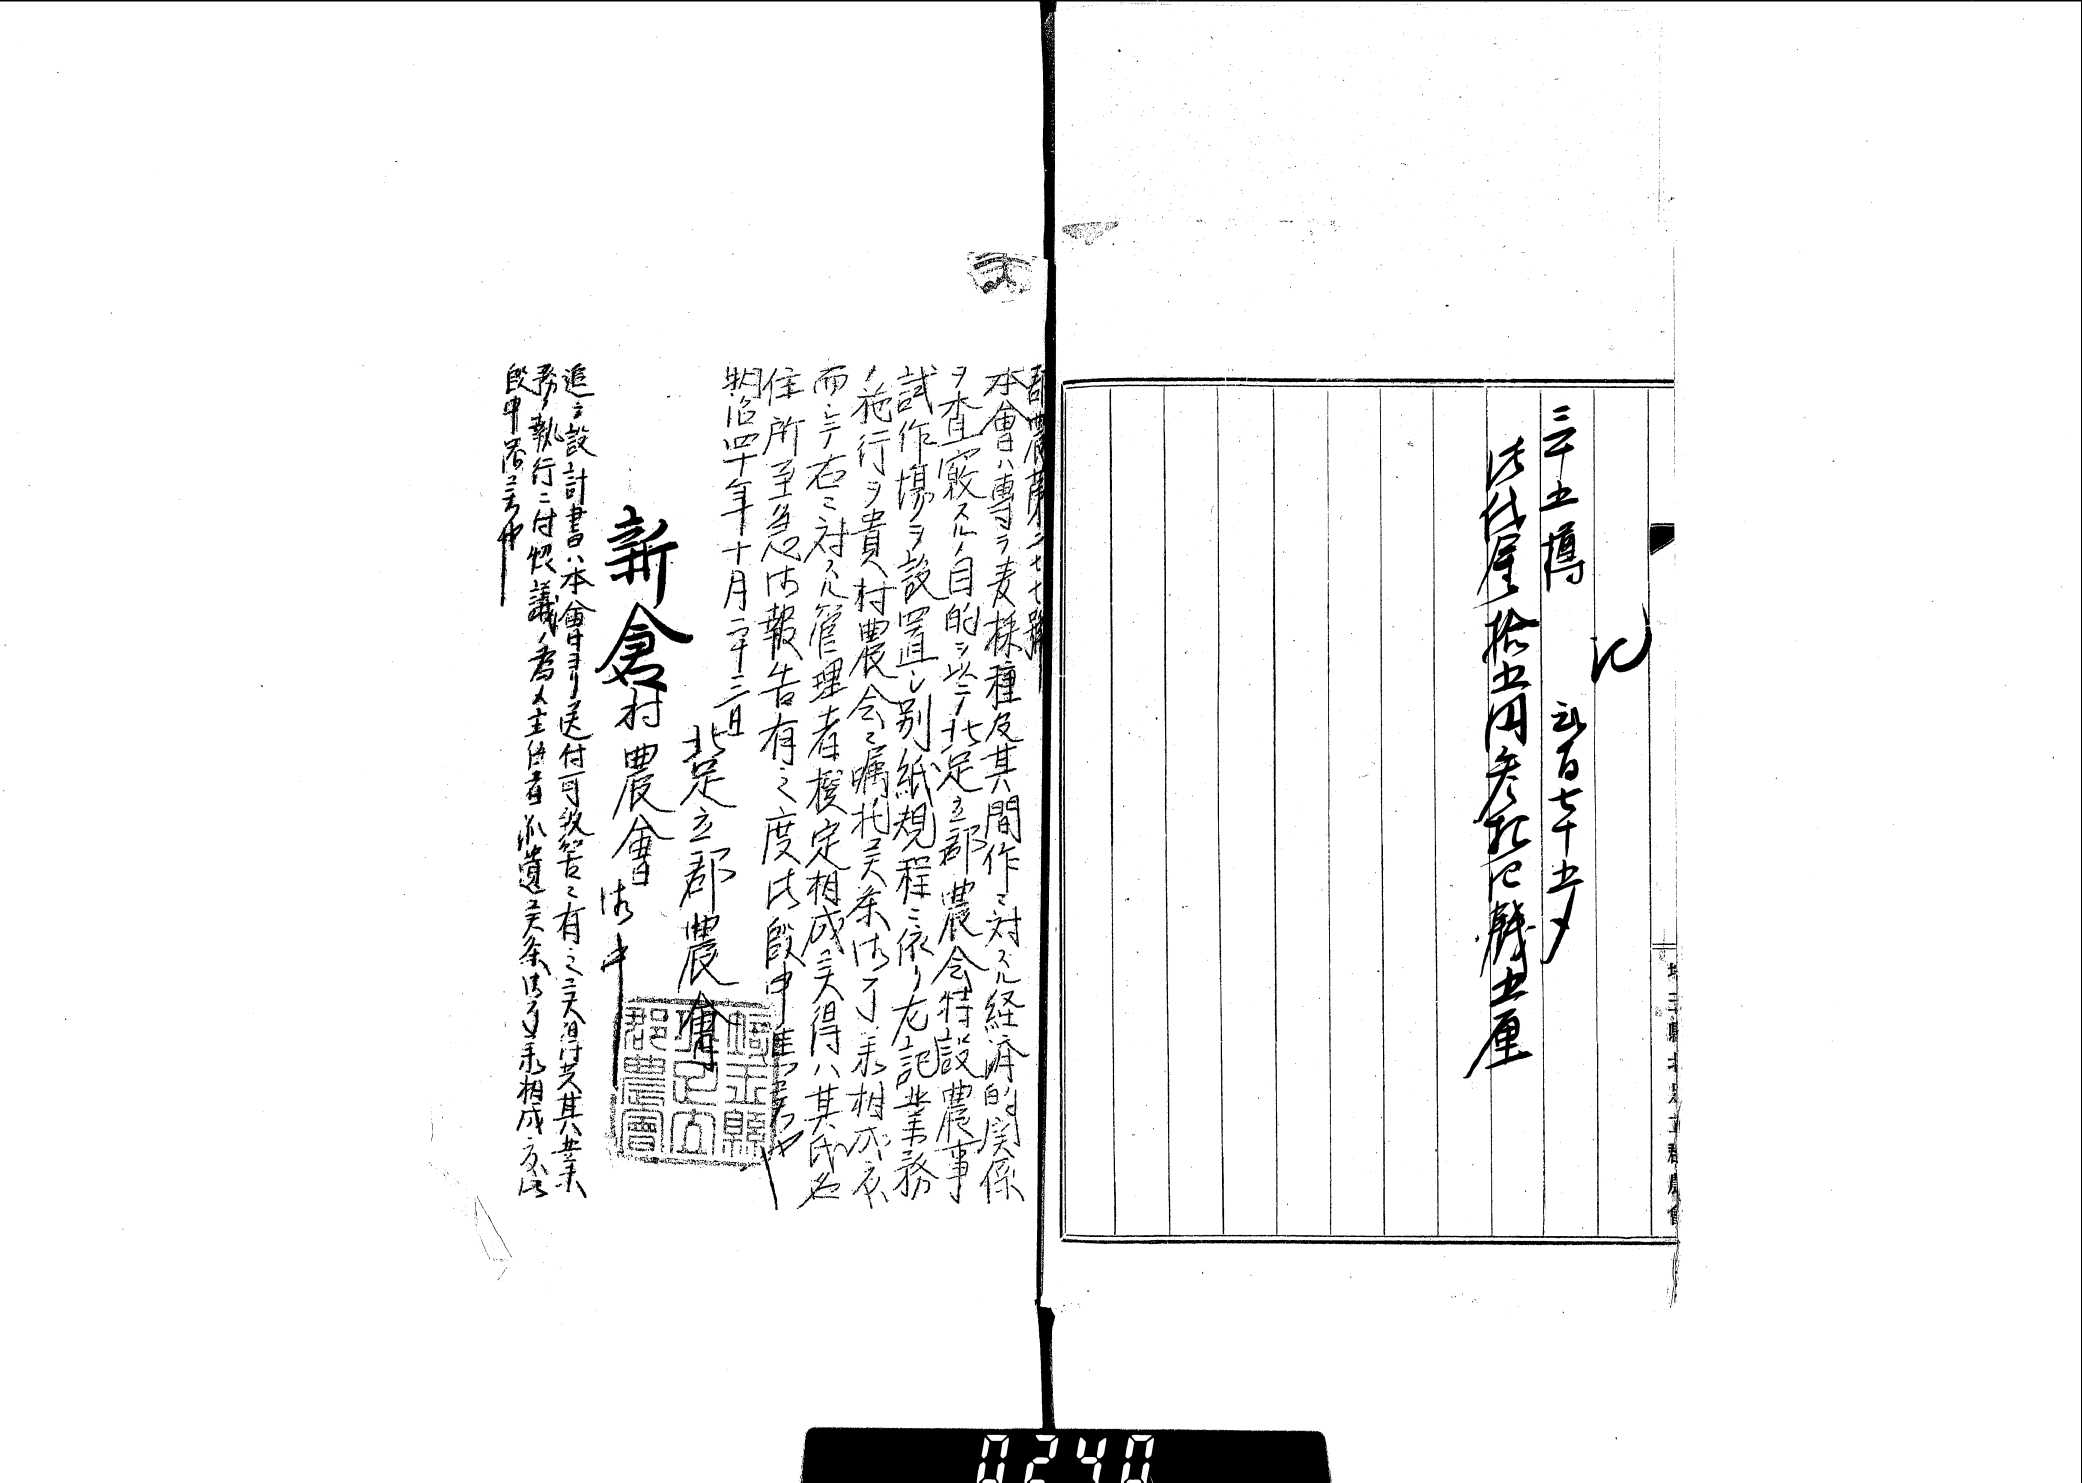 記
三十五樽 弐百七十五夕
此代金拾五円参拾四銭五厘
埼玉縣北足立郡農會
郡農第二七七號
本會ハ専ラ麦採種及其間作ニ対スル経済的関係
ヲ査覈スルノ目的ヲ以テ北足立郡農会特設農事
試作場ヲ設置シ別紙規程ニ依リ左記業務
ノ施行ヲ貴村農会ニ嘱托候条御了承相成度
而シテ右ニ対スル管理者撰定相成候得ハ其氏名
住所至急御報告有之度此段申進候也
明治四十年十月二十三日
北足立郡農會
新倉村農會御中
埼玉縣北足立郡農會
追テ設計書ハ本會ヨリ送付可致筈ニ有之候得共其業
務ノ執行ニ付協議ノ為メ主任者派遣候条御了承相成度此
段申添候也
0240